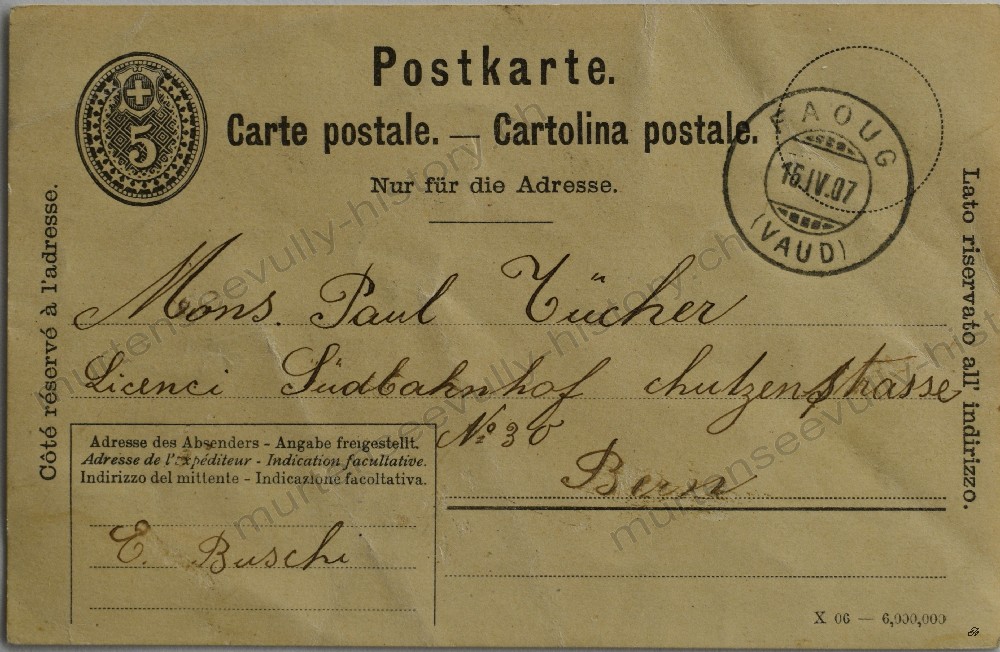 5
Postkarte.
Carte postale. — Cartolina postale.
Nur für die Adresse.
FAOUG
15.IV.07
(VAUD)
Côté réservé à l'adresse.
Lato riservato all' indirizzo.
Mons. Paul Tücher
Licenci Südbahnhof chutzenstrasse
No 30
Bern
Adresse des Absenders - Angabe freigestellt.
Adresse de l'expéditeur - Indication facultative.
Indirizzo del mittente - Indicazione facoltativa.
E. Buschi
X 06 — 6,000,000
murtenseevully-history.ch
murtenseevully-history.ch
murtenseevully-history.ch